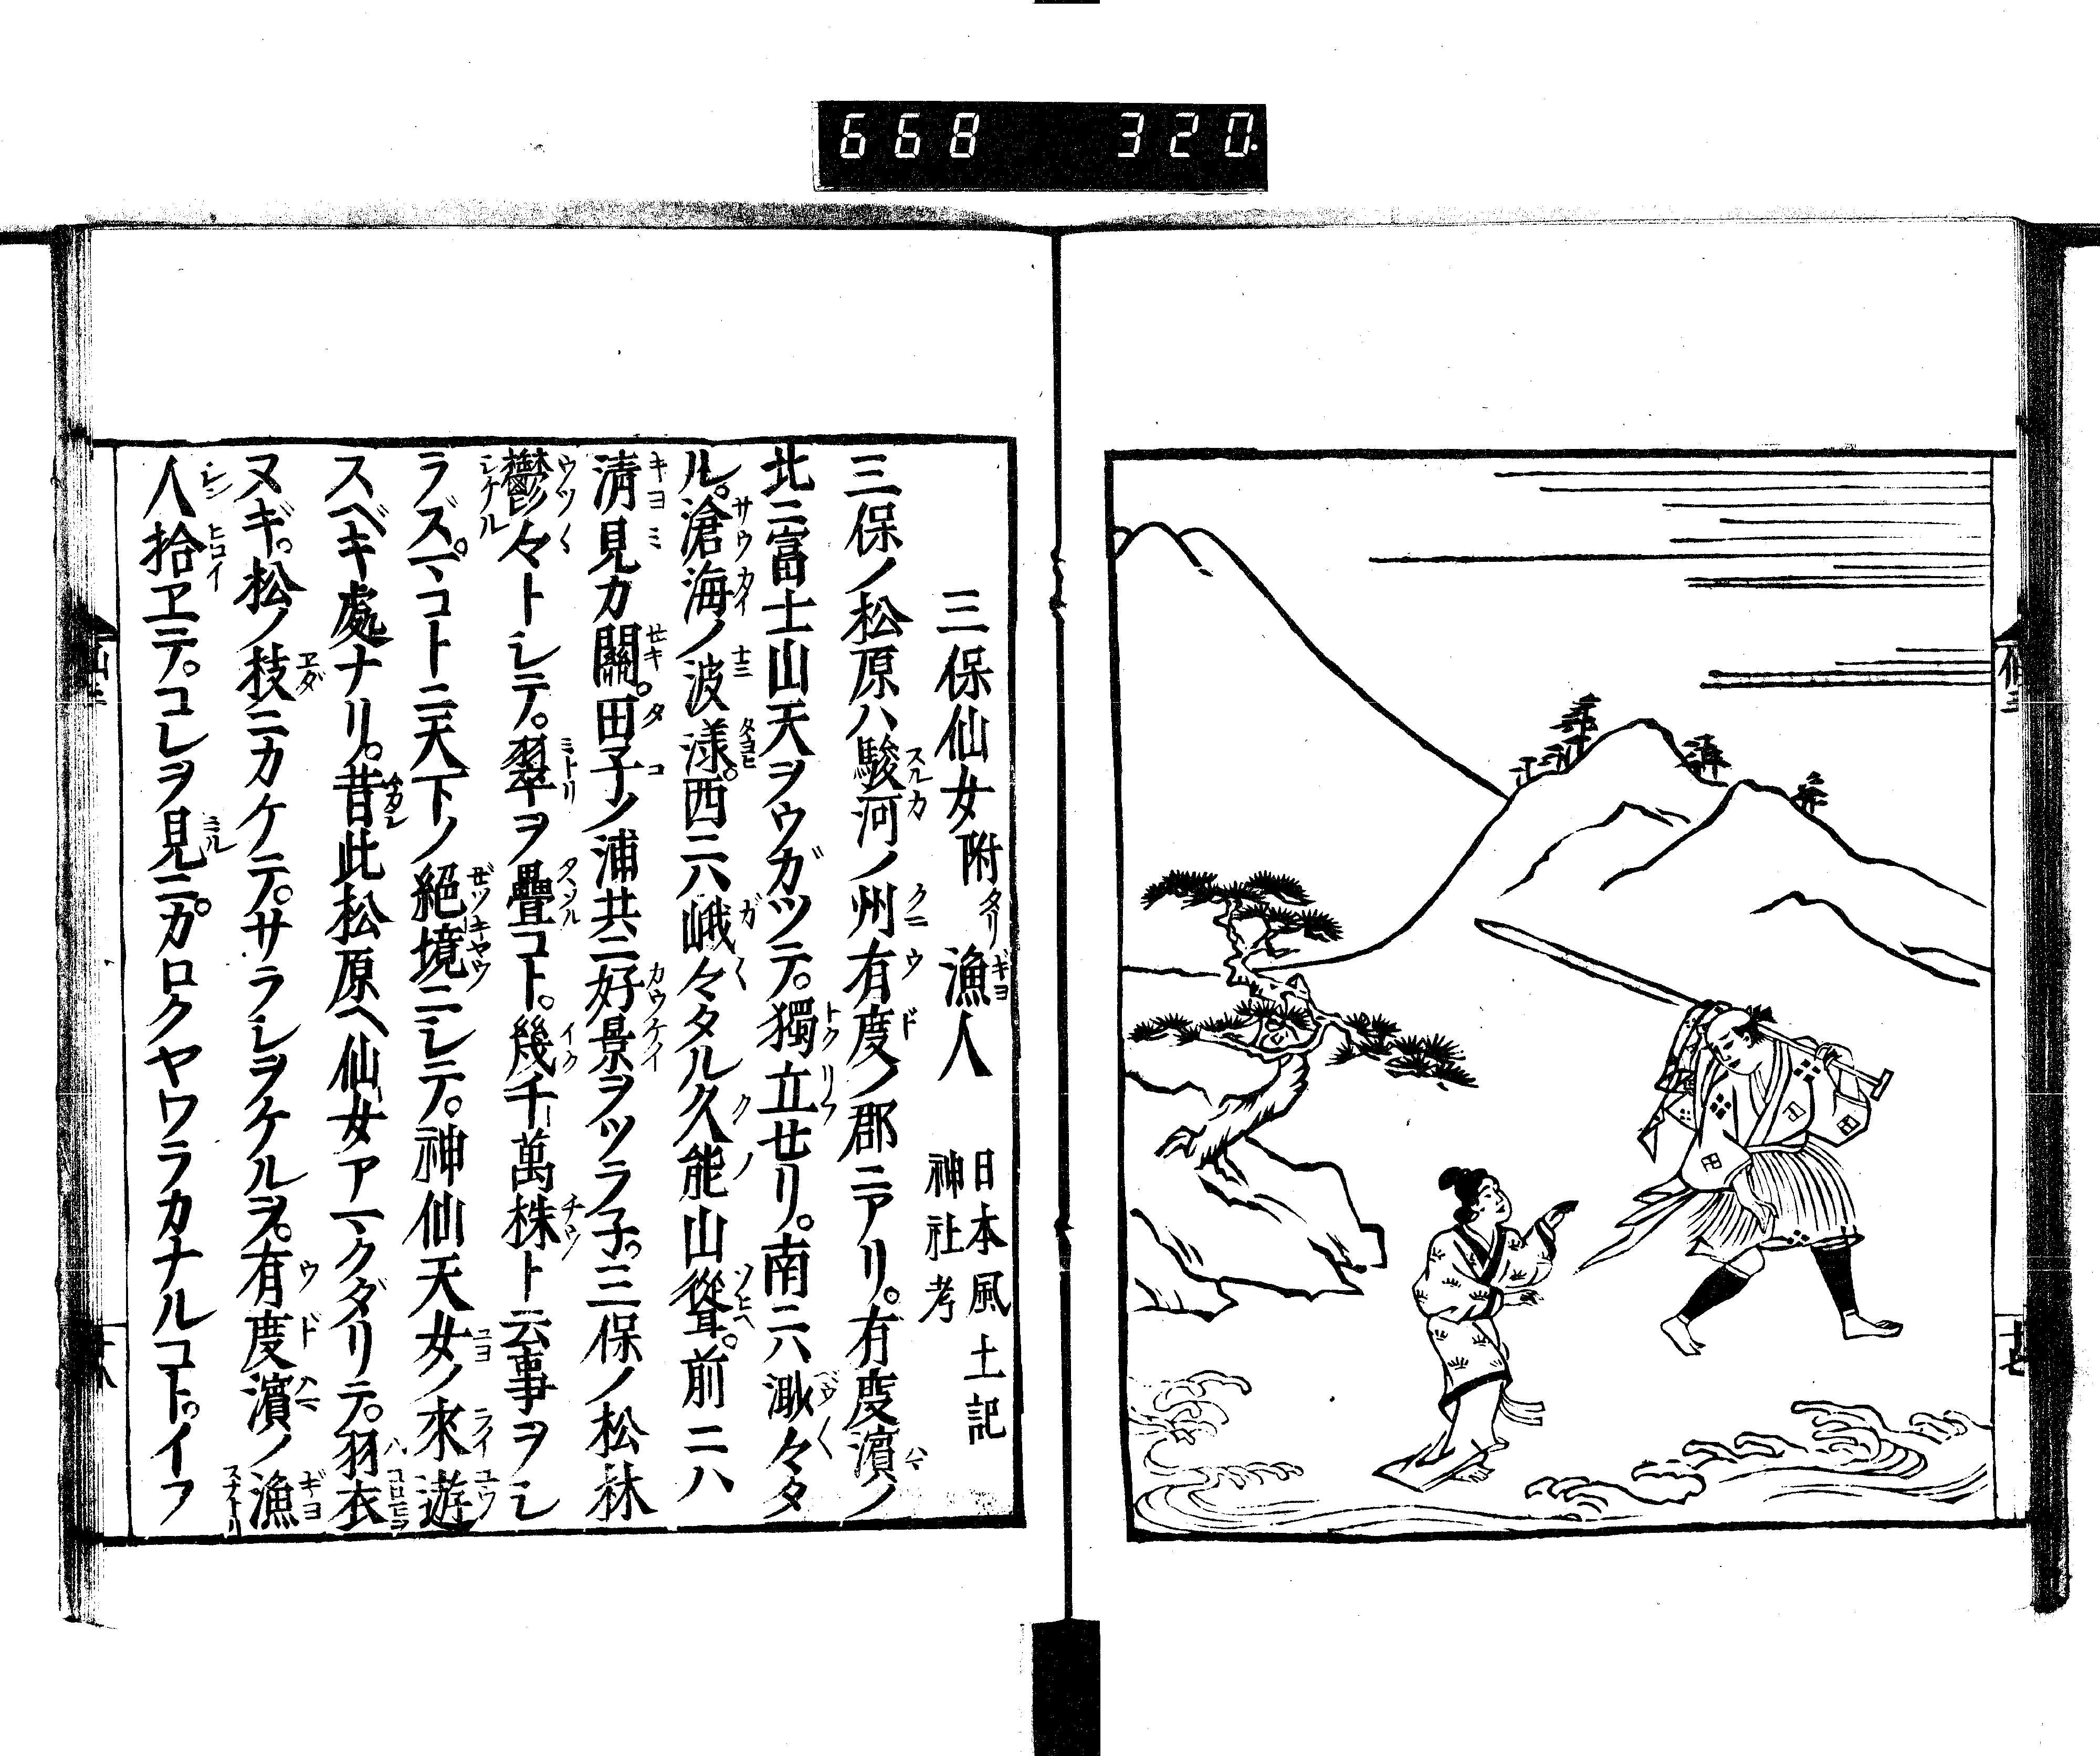 668 320
三保仙女附漁人 日本風土記
神社考
三保ノ松原ハ駿河ノ州有度ノ郡ニアリ。有度濵ノ
北ニ富士山天ヲウガツテ。獨立セリ。南ニハ渺々タ
ル。滄海ノ波漾。西ニハ峨々タル久能山聳。前ニハ
清見カ關。田子ノ浦共ニ好景ヲツラ子。三保ノ松林
鬱々トシテ。翠ヲ疊コト。幾千萬株ト云事ヲシ
ラズ。マコトニ天下ノ絕境ニシテ。神仙天女ノ來遊
スベキ處ナリ。昔此松原ヘ仙女アマクダリテ。羽衣
ヌギ。松ノ枝ニカケテ。サラシヲケルヲ。有度濵ノ漁
人拾ヱテ。コレヲ見ニ。カロクヤワラカナルコト。イフ